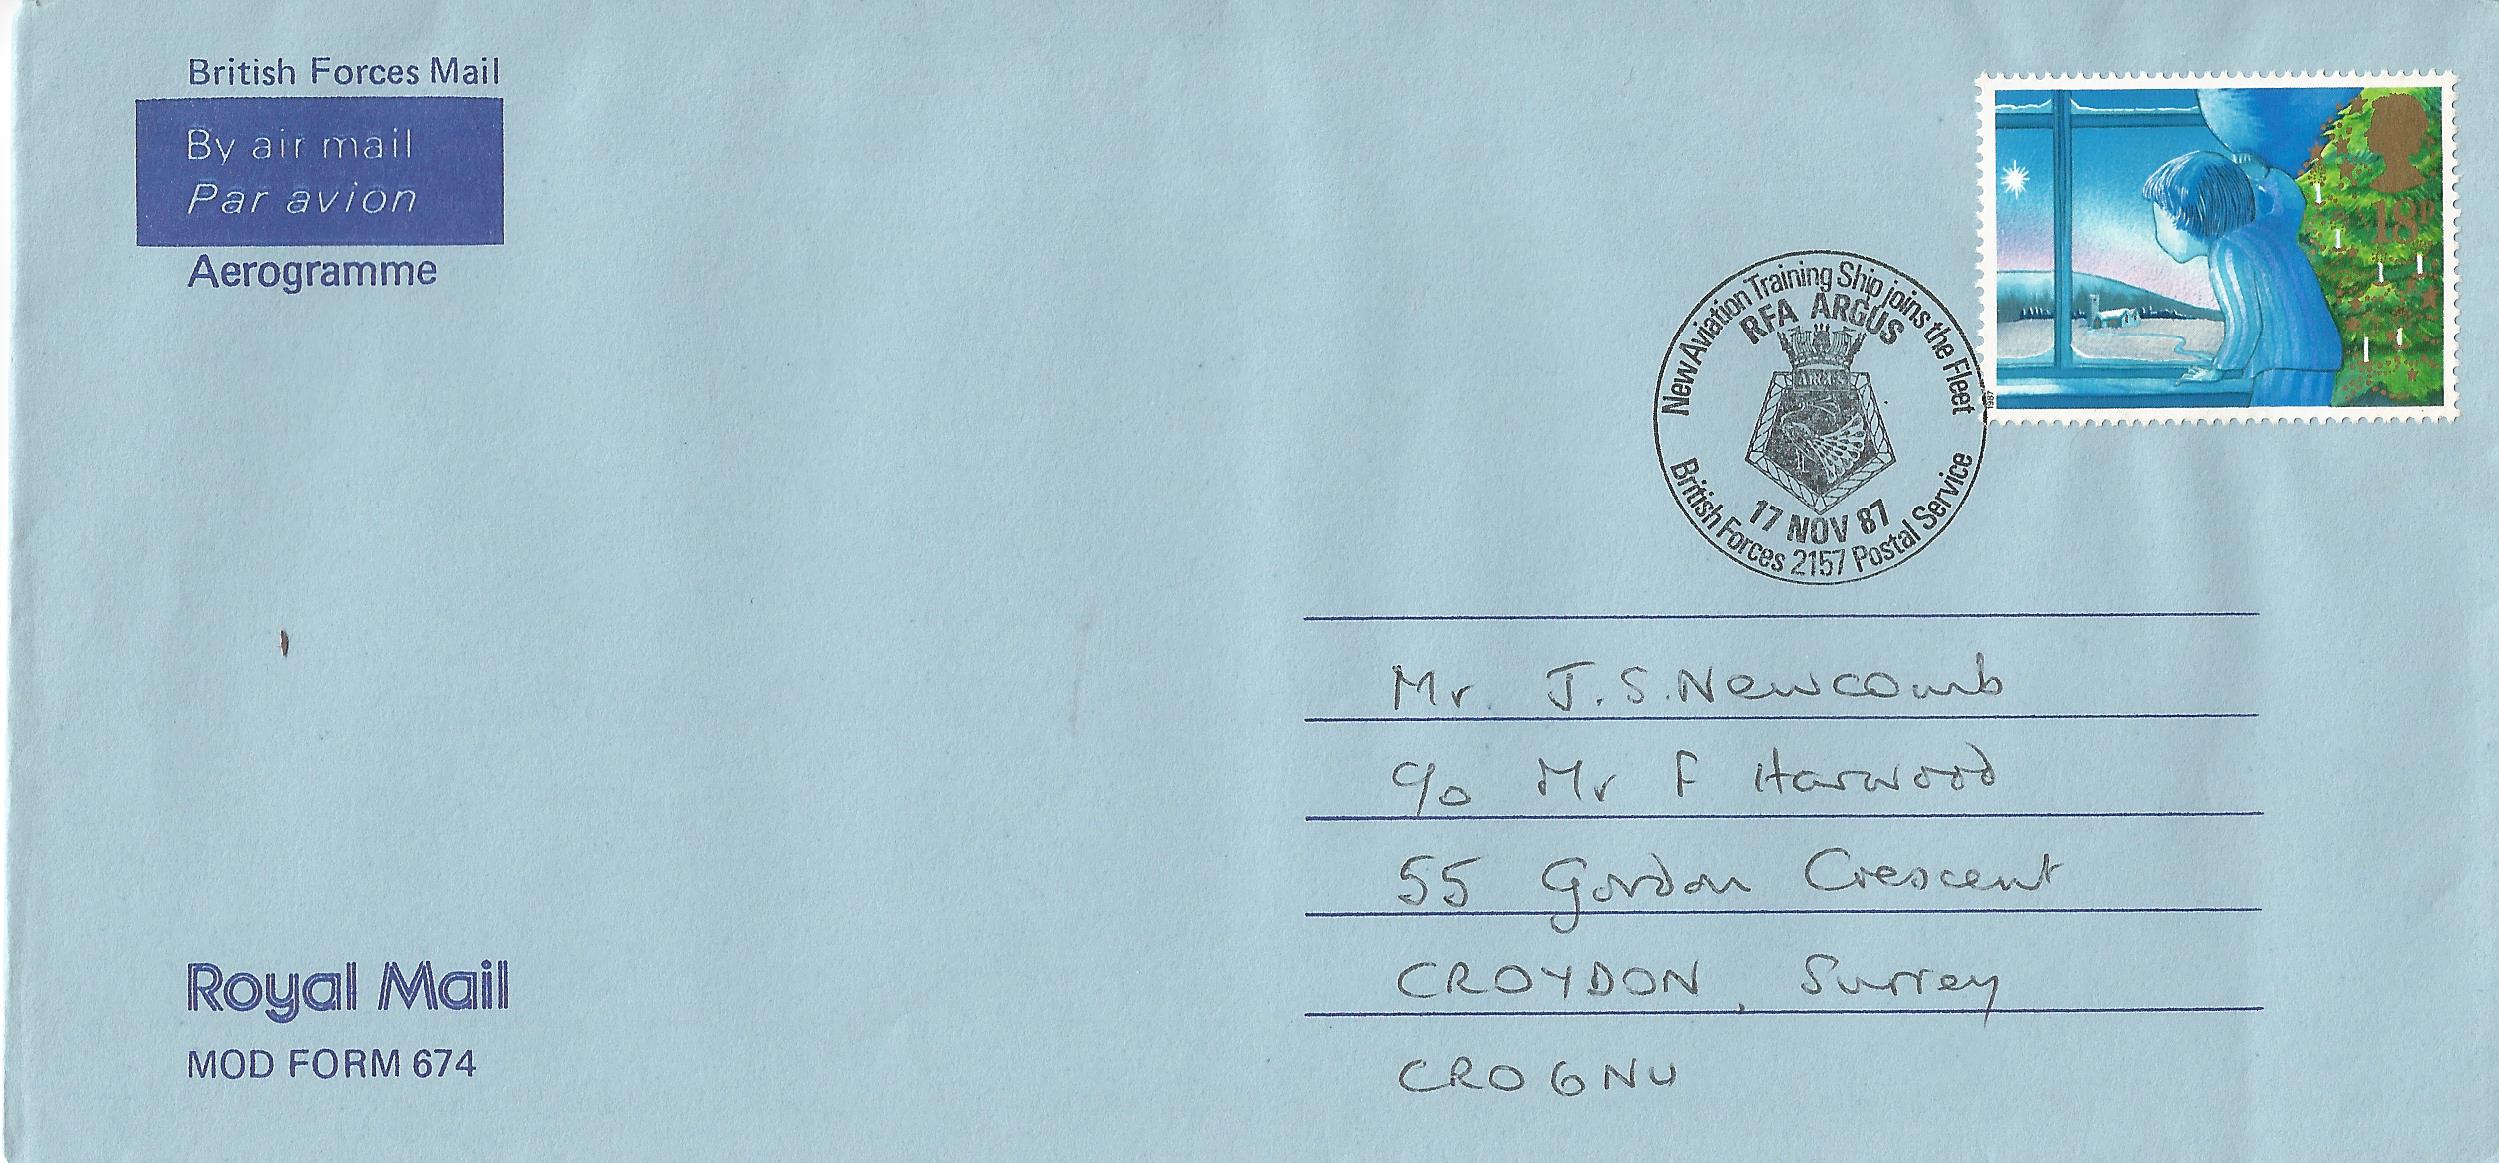 British Forces Mail
By air mail
Par avion
Aerogramme
18p
1987
New Aviation Training Ship joins the Fleet
RFA ARGUS
ARGUS
17 NOV 87
British Forces 2157 Postal Service
Mr J.S. Newcomb
c/o Mr F Harwood
55 Gordon Crescent
CROYDON, Surrey
CRO 6NU
Royal Mail
MOD FORM 674